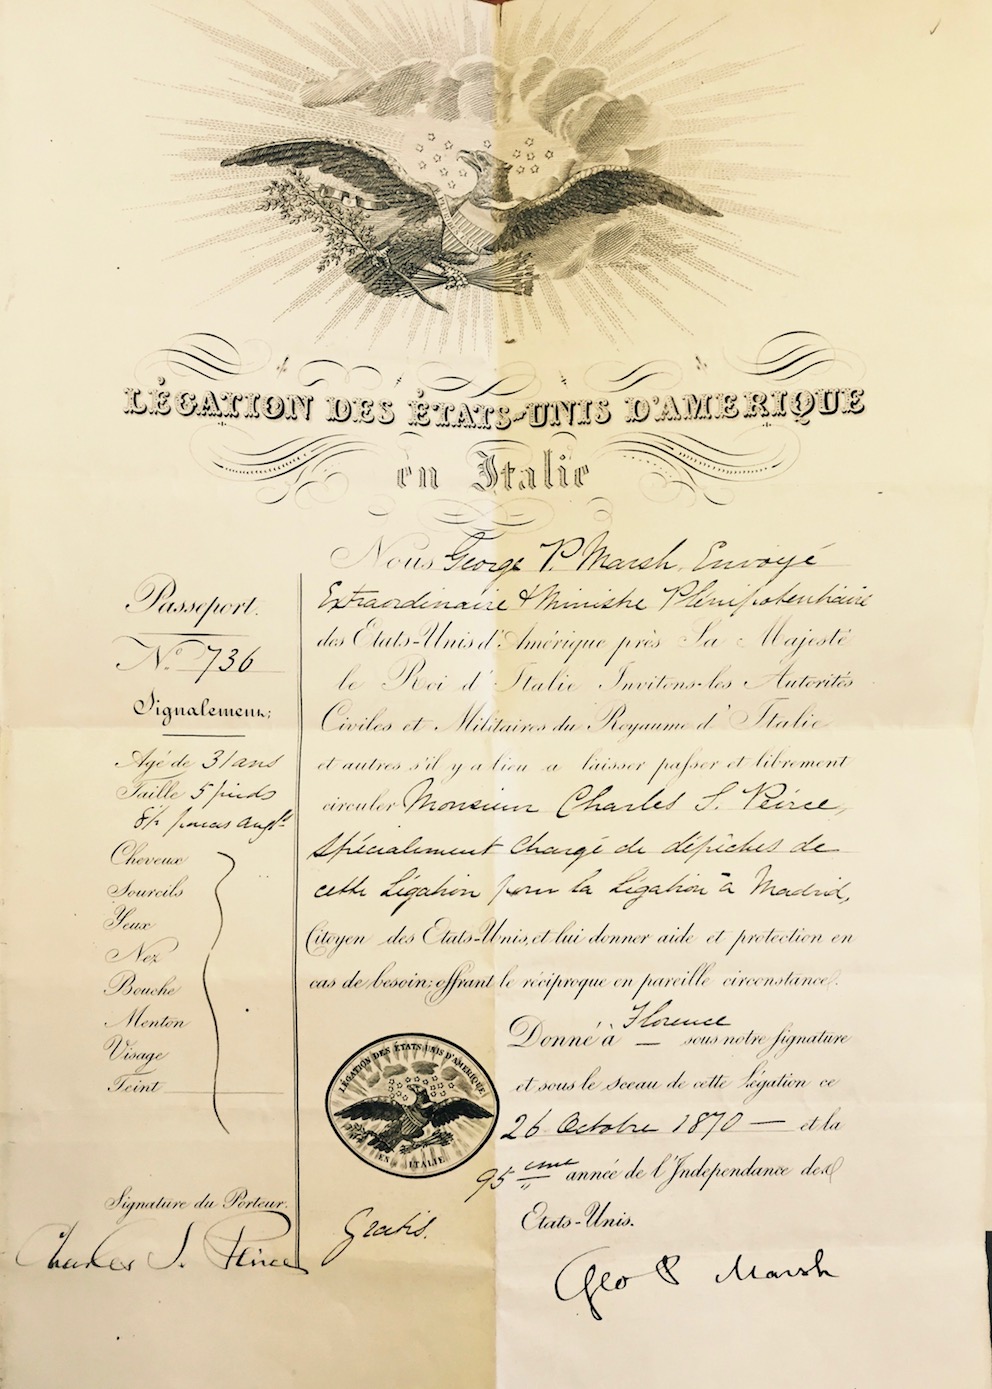 LÉGATION DES ÉTATS-UNIS D'AMERIQUE
en Italie
Passeport.
N.º 736
Signalement;
Agé de 31 ans
Taille 5 pieds
8½ pouces angl.
Cheveux
Sourcils
Yeux
Nez
Bouche
Menton
Visage
Teint
Signature du Porteur.
Charles S. Peirce
Nous George P. Marsh, Envoyé
Extraordinaire & Ministre Plénipotentiaire
des Etats-Unis d'Amérique près Sa Majesté
le Roi d'Italie Invitons les Autorités
Civiles et Militaires du Royaume d'Italie
et autres s'il y a lieu a laisser passer et librement
circuler Monsieur Charles S. Peirce,
spécialement chargé de dépêches de
cette Légation pour la Légation à Madrid,
Citoyen des Etats-Unis, et lui donner aide et protection en
cas de besoin; offrant le réciproque en pareille circonstance.
Donné à Florence sous notre Signature
et sous le sceau de cette Légation ce
26 Octobre 1870 — et la
95ème année de l'Indépendance des
Etats-Unis.
LÉGATION DES ÉTATS UNIS D'AMÉRIQUE
EN ITALIE
Gratis.
Geo P Marsh